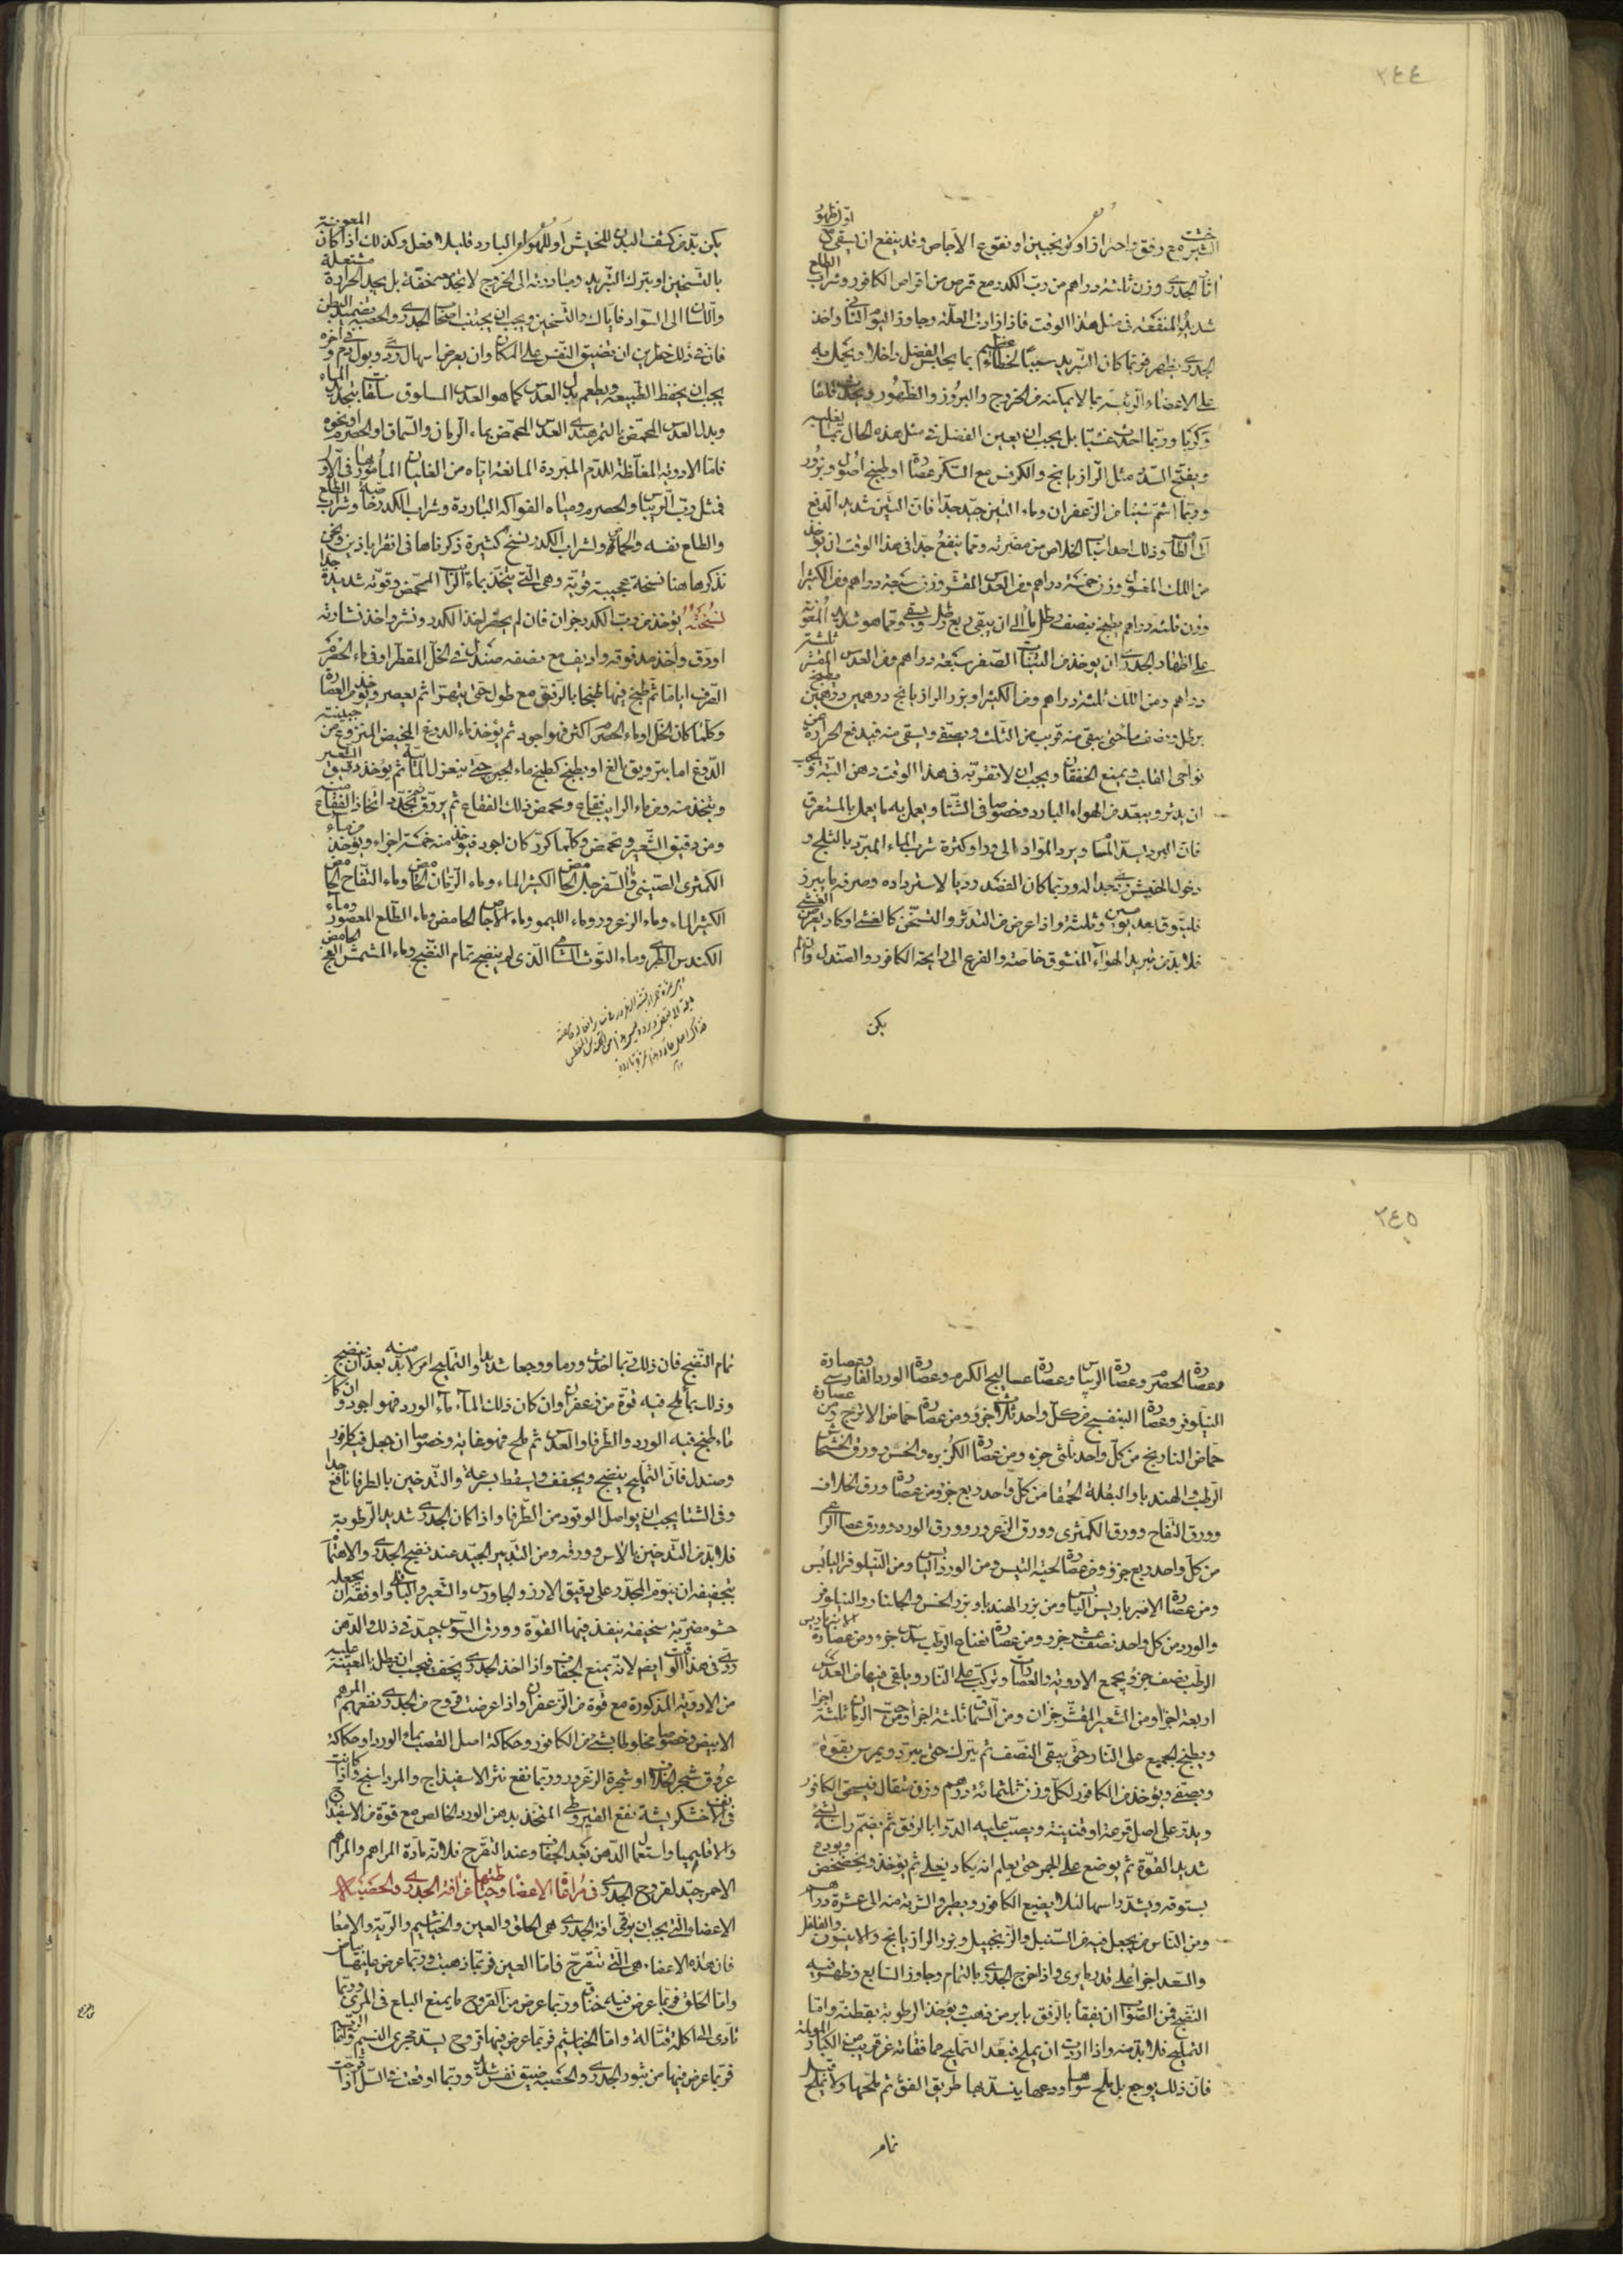 ٢٤٤
الشيرخشت مع رفق واحتراز او ترنجبين او نقوع الاجاص وقد ينفع ان يسقى في اول ظهور
اثار الجدري وزن ثلثة دراهم من رب الكدر مع قرص من اقراص الكافور وشراب الطلع
شديد المنفعة في مثل هذا الوقت فاذا زادت العلة وجاوز اليوم الثاني واخذ
الجدري يظهر فربما كان التبريد سببا لخطاء عظيم بما يحبس الفضل داخلا ويحمل به
على الاعضاء الرئيسة بما لا يمكنه من الخروج والبروز والظهور ويحدث قلقا
وكربا وربما احدث غشيا بل يجب ان يعين الفضل في مثل هذه الحال بما يغليه
ويفتح السدد مثل الرازيانج والكرفس مع السكر عصارة او طبيخ اصول وبزور
وربما اشم شيئا من الزعفران وماء التين جيد جدا فان التين شديد الدفع
الى الظاهر وذلك احد اسباب الخلاص من مضرته ومما ينفع جدا في هذا الوقت ان يؤخذ
من اللك المغسول وزن خمسة دراهم ومن العدس المقشر وزن سبعة دراهم ومن الكثيرا
وزن ثلثة دراهم يطبخ بنصف رطل ماء الى ان يبقى ربع رطل ويسقى ومما هو شديد المعونة
على اظهار الجدري ان يؤخذ من التين الصفر سبعة دراهم ومن العدس المقشر ثلثة
دراهم ومن اللك ثلثة دراهم ومن الكثيرا وبزر الرازيانج درهمين درهمين يطبخ
برطل ونصف ماء حتى يبقى منه قريب من الثلث ويصفى ويسقى منه فيدفع الحرارة عن
نواحي القلب ويمنع الخفقان ويجب ان لا تقربه في هذا الوقت دهن البتة ويجب
ان يدثر ويبعد من الهواء البارد وخصوصا في الشتا ويعمل به ما يعمل بالمستعرق
فان البرد يسد المسام ويرد المواد الى وراء وكثرة شرب الماء المبرد بالثلج و
دخول الخيش ردي جدا له وربما كان الفصد رديا لاسترداده وصرفه ما يبرز
فليتوق بعد يومين وثلثة واذا عرض من التدثر والتسخن كالغشي او كاد يعرض الغشي
فلا بد من تبريد الهواء المنشوق خاصة والفزع الى رايحة الكافور والصندل وان لم
يكن
يكن بد من كشف البدن للخيش او للهواء البارد قليلا فعل وكذلك اذا كان المعونة
بالتسخين او بترك التبريد ومبادرته الى الخروج لا تجد معه خفة بل يجد الحرارة مشتعلة
واللسان الى السواد فاياك والتسخين ويجب ان يجتنب اصحاب الجدري والحصبة تضميد البطن
فان في ذلك خطرين ان تضيق النفس على المكان وان يعرض اسهال ردي وبول دم وفي اخره
يجب ان يحفظ الطبيعة ويطعم بدل العدس كما هو العدس المسلوق سلقات بتجديد الماء
وبدل العدس المحمض بالتمرهندي العدس المحمض بماء الرمان والسماق او الحصرم ونحوه
فاما الادوية المغلظة للدم المبردة المانعة اياه من الغليان المامور بها في الاول
فمثل رب الريباس والحصرم ومياه الفواكه الباردة وشراب الكدر خاصة وشراب الطلع
والطلع نفسه والجمار ولشراب الكدر نسخ كثيرة ذكرناها في اقراباذين ونحن
نذكرها هنا نسخة عجيبة قوية وهي التي يتخذ بماء الراب المحمض وقوته شديدة جدا
نسخته يؤخذ من رب الكدر جزان فان لم يحضر اخذ الكدر ونشر واخذ نشارته
او دق واخذ مدقوقه واديف مع نصفه صندل في الخل المقطر او في ماء الحصرم
الصرف اياما ثم طبخ فيها طبخا بالرفق مع طول حتى يتهرا ثم يعصر ويؤخذ من العصارة
وكلما كان الخل او ماء الحصرم اكثر فهو اجود ثم يؤخذ ماء الدوغ المخيض المنزوع من جبنيته
الدوغ اما بترويق بالغ او بطبخ كطبخ ماء الجبن حتى ينعزل المائية ثم يؤخذ دقيق الشعير
ويتخذ منه ومن ماء الرايب فقاع ويحمض ذلك الفقاع ثم يروق ثم يجدد اتخاذ الفقاع منه
ومن دقيق الشعير وتحمض وكلما كرر كان اجود فيؤخذ منه خمسة اجزاء ويؤخذ من ماء
الكمثرى الصيني والسفرجل الحامض الكثير الماء وماء الرمان الحامض وماء التفاح الحامض
الكثير الماء وماء الزعرور وماء الليمو وماء الاجاص الحامض وماء الطلع المعصور وماء
الكندس الطري وماء التوث الشامي الذي لم ينضج تمام النضج وماء المشمش الفج الحامض
٢٤٥
وعصارة الحصرم وعصارة الريباس وعصارة عساليج الكرم وعصارة الورد الفارسي وعصارة
النيلوفر وعصارة البنفسج من كل واحد ثلث جزء ومن عصارة حماض الاترج ومن عصارة
حماض النارنج من كل واحد ثلثي جزء ومن عصارة الكزبره والخس وورق الخشخاش
الرطب والهندبا والبقلة الحمقا من كل واحد ربع جزء ومن عصارة ورق الخلاف
وورق التفاح وورق الكمثرى وورق الزعرور وورق الورد وورق عصا الراعي
من كل واحد ربع جزء ومن عصارة لحية التيس ومن الورد اليابس ومن النيلوفر اليابس
ومن عصارة الامبرباريس اليابس ومن بزر الهندبا وبزر الخس والجلنار والنيلوفر
والورد من كل واحد نصف عشر جزء ومن عصارة نعناع الرطب سدس جزء ومن عصارة الامبرباريس
الرطب نصف جزء يجمع الادوية والعصارات وتركب على النار ويلقى فيها من العدس
اربعة اجزا ومن الشعير المقشر جزان ومن السماق ثلثة اجزا ومن حب الرمان ثلثة اجزا
ويطبخ الجميع على النار حتى يبقى النصف ثم يترك حتى يبرد ويمرس بقوة
ويصفى ويؤخذ من الكافور لكل وزن ثلثمائة درهم وزن مثقال فيسحق الكافور
ويذر على اصل قرعة او قنينة ويصب عليه الدوا بالرفق ثم يضم راسه بشئ
شديد القوة ثم يوضع على الجمر حتى يعلم انه يكاد يغلي ثم يؤخذ ويخضخض ويودع
بستوقة ويشد راسها لئلا يضيع الكافور ويطير والشربة منه الى عشرة دراهم
ومن الناس من يجعل فيه من السنبل والزنجبيل وبزر الرازيانج والانيسون والفلفل
والسعد اجزأ على قدر ما يرى واذا خرج الجدري بالتمام وجاوز السابع وظهر فيه
النضج فمن الصواب ان يفقا بالرفق بابر من ذهب ويؤخذ الرطوبة بقطنة واما
التمليح فلا بد منه واذا اردت ان يملح فبعد التمليح عما فقاته عن قريب من الكبار المولمة
فان ذلك يوجع بل ملح سواها ودعها ينسد بها طريق الفق ثم ملحها ولا يملح قبل
تمام
تمام النضج فان ذلك ربما احدث ورما ووجعا شديدا والتمليح امر لا بد منه بعد ان ينضج
وذلك بما ملح فيه قوة من زعفران وان كان ذلك الماء ماء الورد فهو اجود وان كان
ماء طبخ فيه الورد والطرفا والعدس ثم ملح فهو غاية وخصوصا ان جعل فيه كافور
وصندل فان التمليح ينضج ويجفف ويسقط بسرعة والتدخين بالطرفا نافع جدا
وفي الشتا يجب ان يواصل الوقود من الطرفا واذا كان الجدري شديد الرطوبة
فلا بد من التدخين بالاس وورقه ومن التدبير الجيد عند نضج الجدري والاهتمام
بتجفيفه ان ينوم المجدر على دقيق الارز والجاورس والشعير والباقلي وافقه ان يجعله
حشو مضربة سخيفة ينفذ فيها القوة وورق السوسن جيد في ذلك والدهن
ردي في هذا الوقت ايضا لانه يمنع الجفاف واذا اخذ الجدري يجف فيجب ان يطلى عليه المعينة
من الادوية المذكورة مع قوة من الزعفران واذا عرضت قروح من الجدري نفعهم المرهم
الابيض وخصوصا مخلوطا بشئ من الكافور وحكاكة اصل القصب بماء الورد او حكاكة
عروق شجر الخلاف او شجرة الزعرور وربما نفع نثر الاسفيذاج والمرداسنج واذا كانت
في الانف خشكريشة نفع القيروطي المتخذ بدهن الورد الخالص مع قوة من الاسفيذاج
والاقليميا واستعمال الدهن بعد الجفاف وعند التقرح فلانه مادة المراهم والمرهم
الاحمر جيد لقروح الجدري في مراقات الاعضا وحياطتها عن افة الجدري والحصبة
الاعضا التي يجب ان يوقى افة الجدري هي الحلق والعين والخياشيم والرية والامعا
فان هذه الاعضاء هي التي تتقرح فاما العين فربما ذهبت وربما عرض عليها بياض
واما الحلق فربما عرض فيه خناق وربما عرض من القروح ما يمنع البلع في المري وربما
تادى الى اكلة قتالة واما الخياشيم فربما عرض فيها قروح يسد مجرى النسيم واما الرية
فربما عرض فيها من بثور الجدري والحصبة ضيق نفس شديد وربما اوقعت في السل اذا قرحت